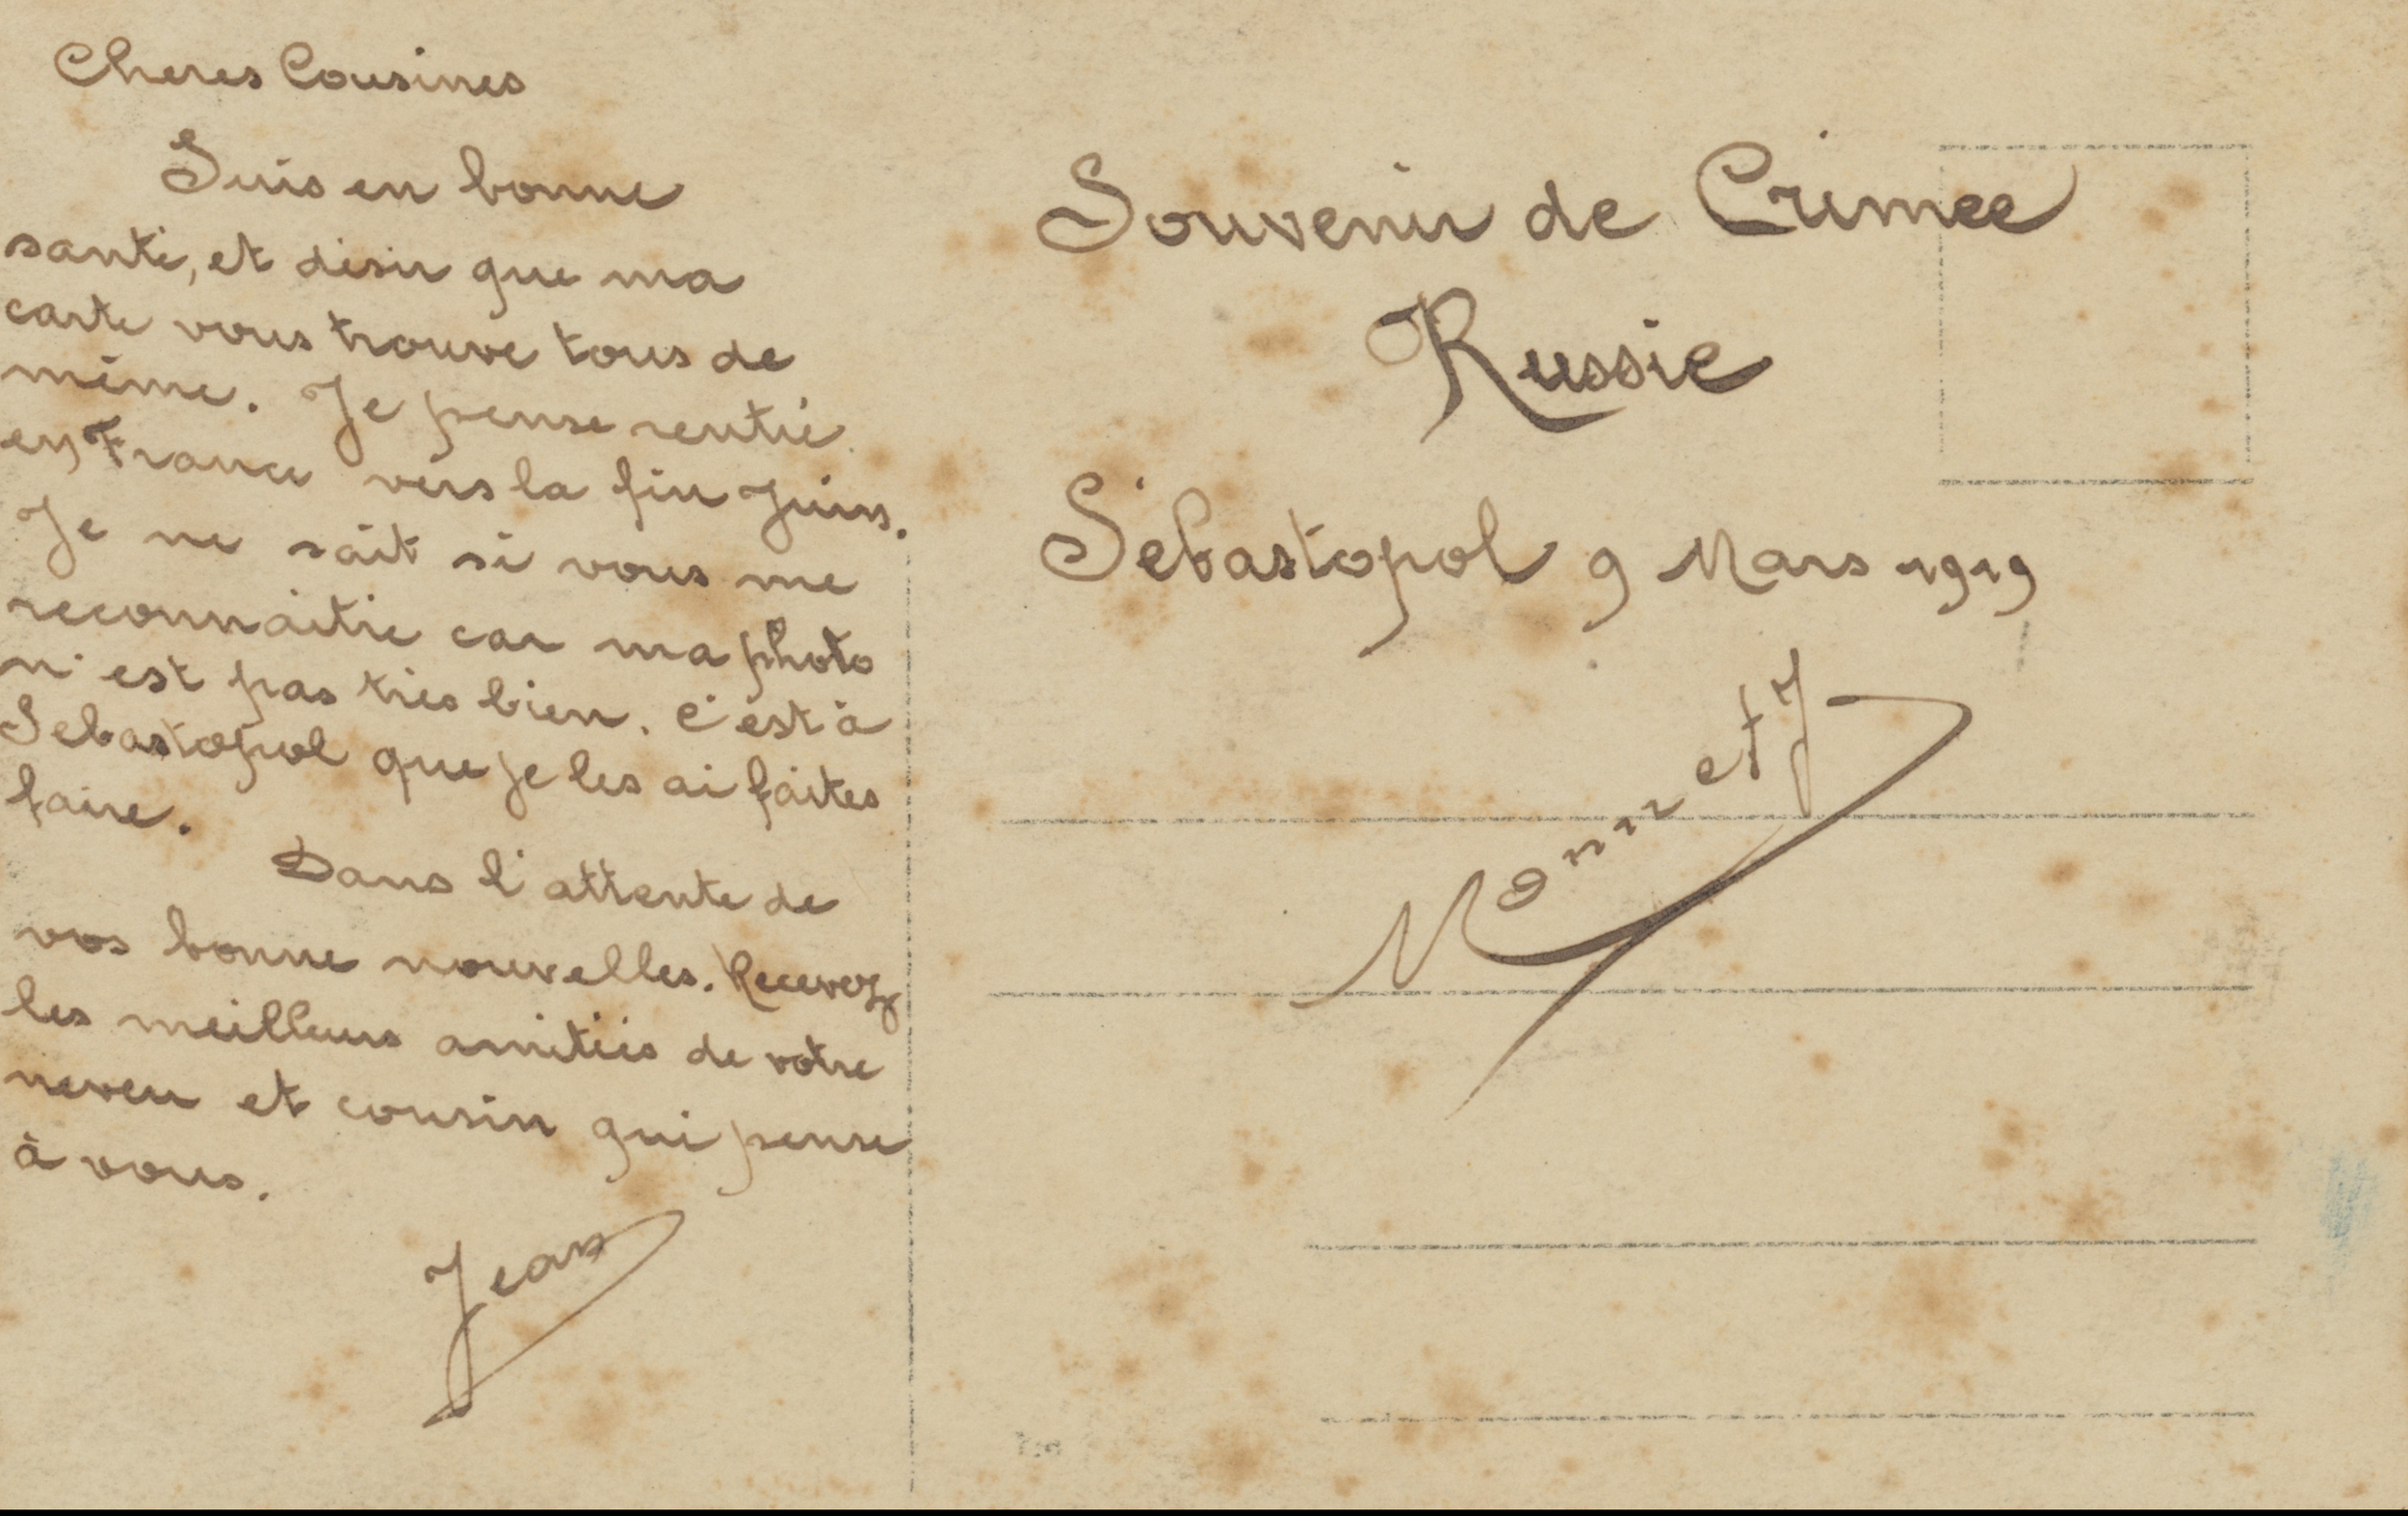 Cheres Cousines
Suis en bonne
santé, et désir que ma
carte vous trouve tous de
même. Je pense rentré
en France vers la fin Juin.
Je ne sait si vous me
reconnaitré car ma photo
n'est pas très bien. C'est à
Sebastopol que je les ai faites
faire.
Dans l'attente de
vos bonne nouvelles. Recevez
les meilleurs amitiés de votre
neveu et cousin qui pense
à vous.
Jean
Souvenir de Crimee
Russie
Sébastopol 9 Mars 1919